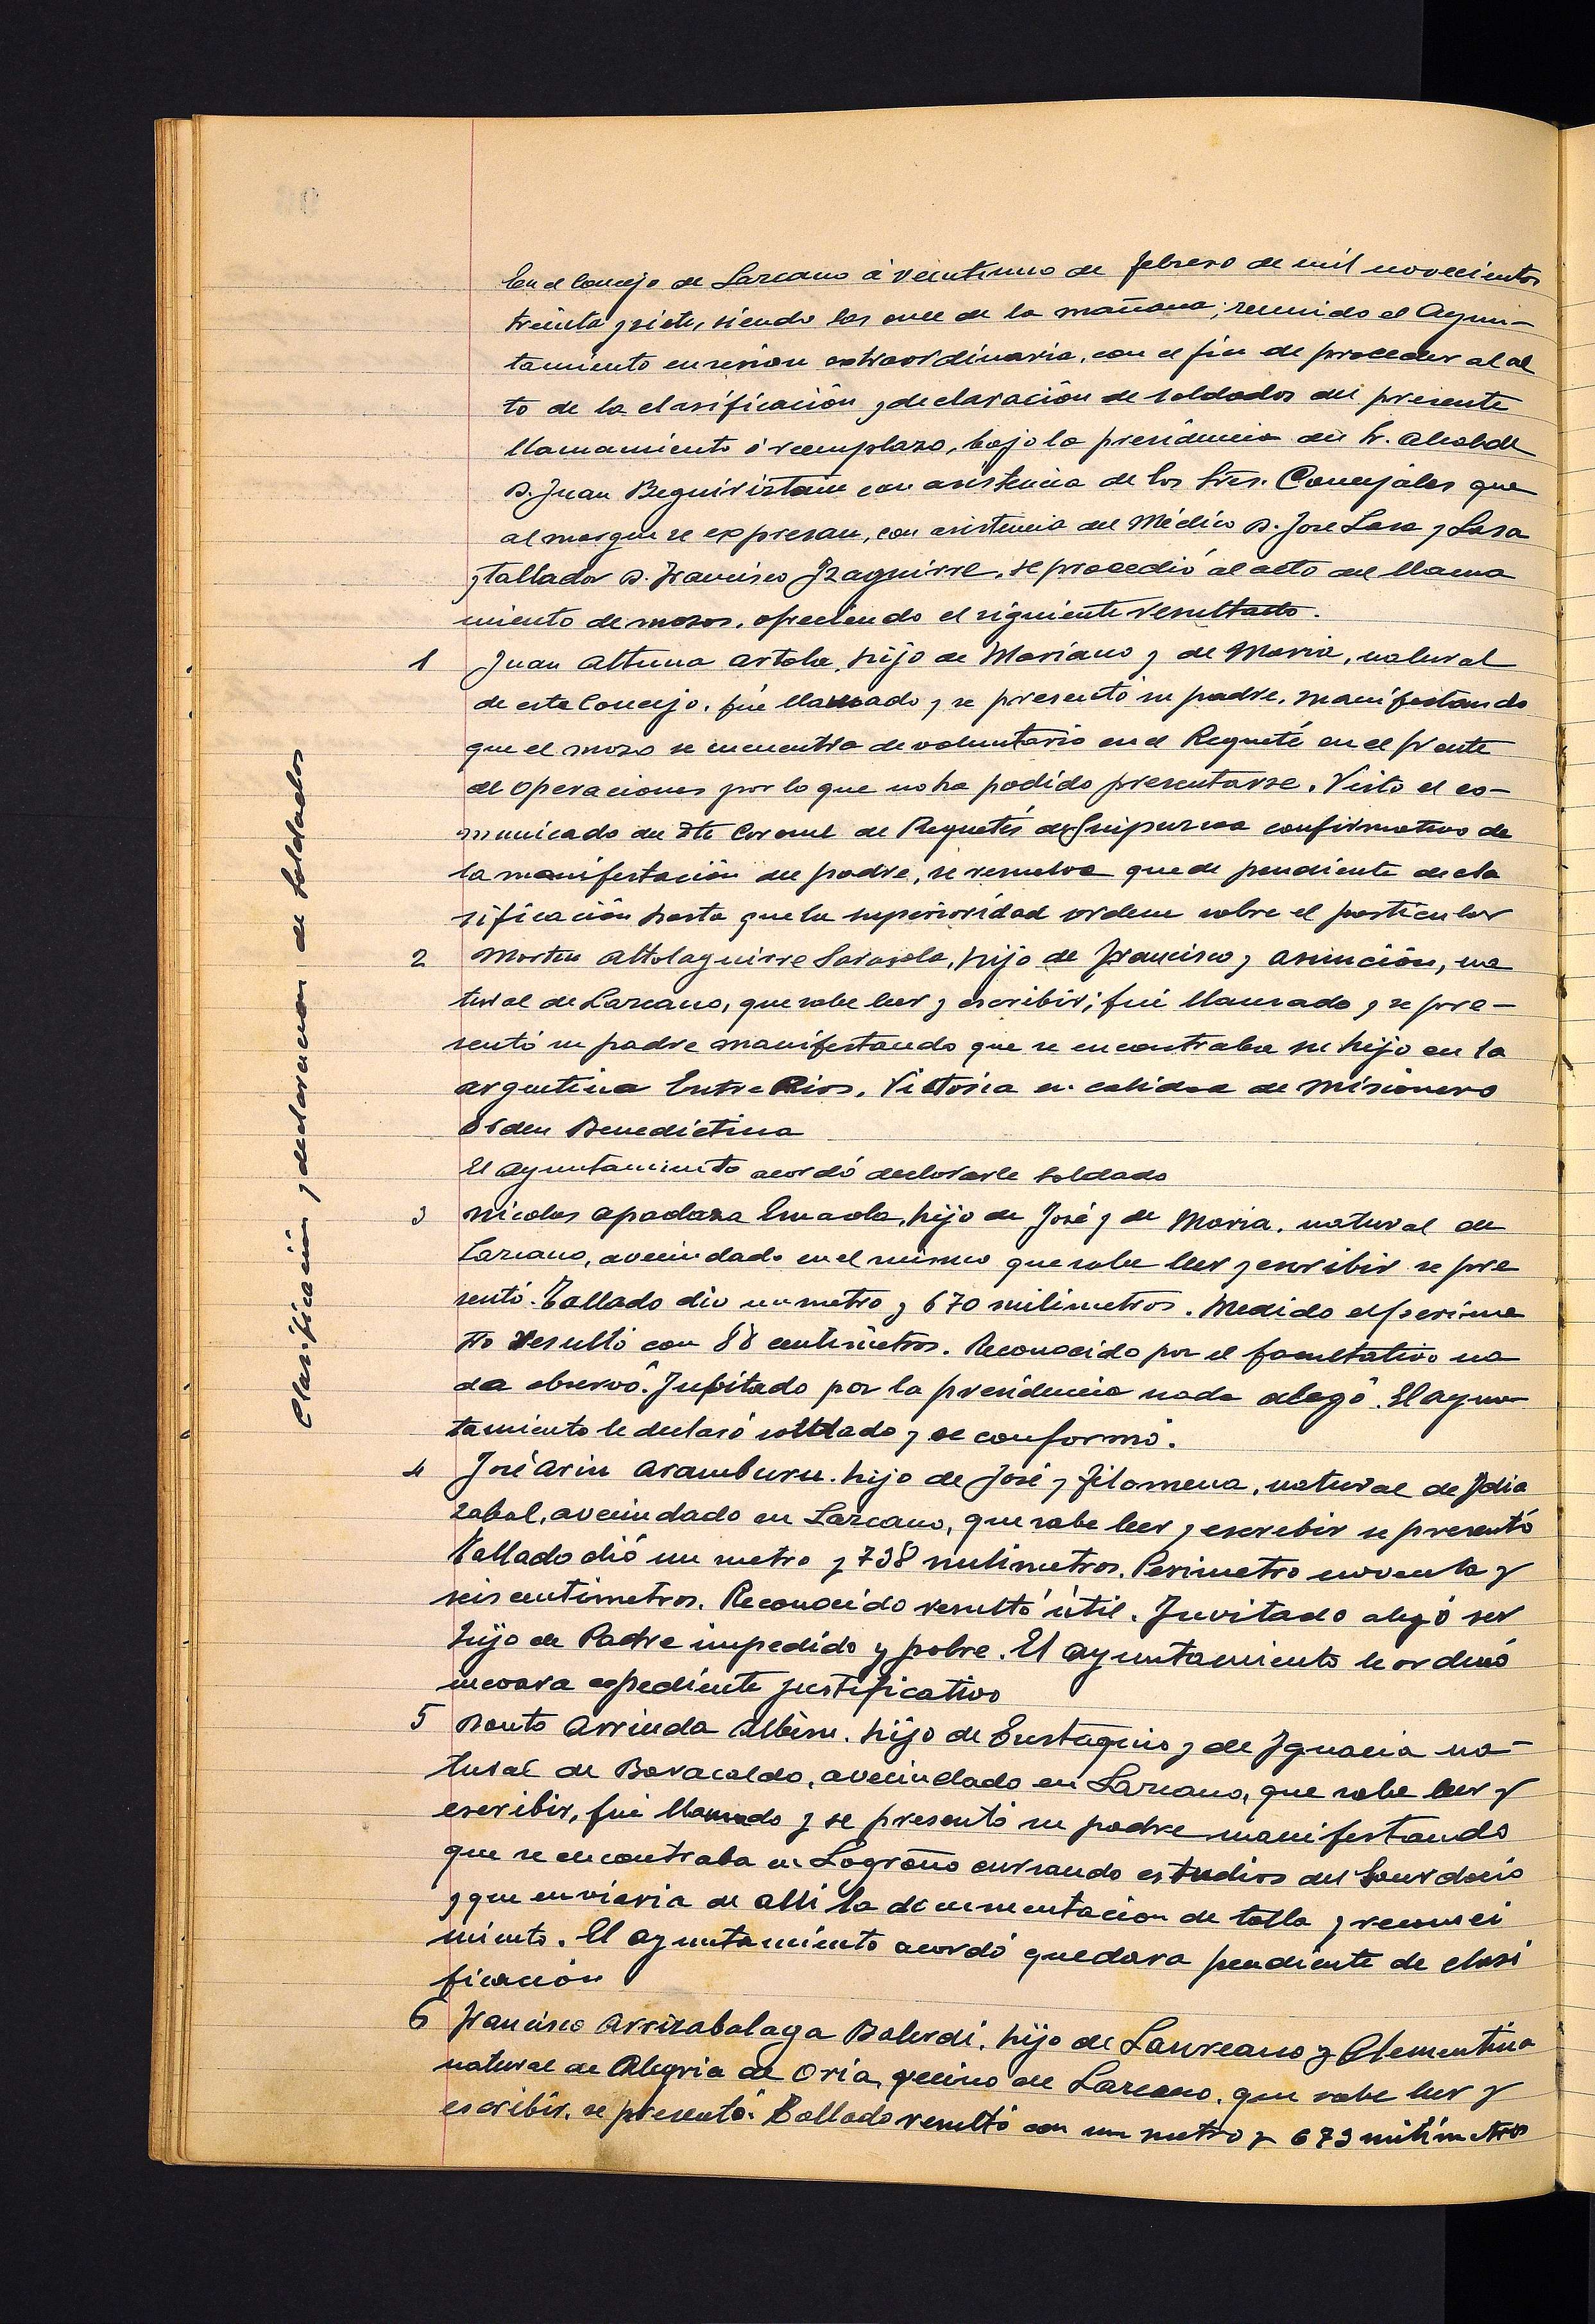 Clasificación y declaracion de Soldados
En el Concejo de Lazcano á veintiuno de febrero de mil novecientos
treinta y siete, siendo las once de la mañana; reunido el Ayun-
tamiento en sesion extraordinaria, con el fin de proceder al ac
to de la clasificación y declaración de soldados del presente
llamamiento ó reemplazo, bajo la presidencia del Sr. Alcalde
D. Juan Beguiristain con asistencia de los Sres. Concejales que
al margen se expresan, con asistencia del Médico D. Jose Lasa y Lasa
y tallador D. Francisco Izaguirre, se procedió al acto del llama
miento de mozos, ofreciendo el siguiente resultado.
1 Juan Altuna Artola, hijo de Mariano y de Maria, natural
de este Concejo, fué llamado y se presentó su padre, manifestando
que el mozo se encuentra de voluntario en el Requeté en el frente
de operaciones por lo que no ha podido presentarse. Visto el co-
municado del Tte Coronel de Requetés de Guipuzcoa confirmativo de
la manifestación del padre, se resuelve quede pendiente de cla
sificación hasta que la superioridad ordene sobre el particular
2 Martin Altolaguirre Sarasola, hijo de Francisco y Asunción, na
tural de Lazcano, que sabe leer y escribir; fué llamado y se pre-
sentó su padre manifestando que se encontraba su hijo en la
Argentina Entre Rios, Victoria en calidad de Misionero
Orden Benedictina
El Ayuntamiento acordó declararle soldado
3 Nicolas Apaolaza Imaola, hijo de José y de Maria, natural de
Lazcano, avecindado en el mismo que sabe leer y escribir se pre
sentó. Tallado dio un metro y 670 milimetros. Medido el perime
tro resultó con 88 centimetros. Reconocido por el facultativo na
da observó. Invitado por la presidencia nada alegó. El ayun
tamiento le declaró soldado y se conformó.
4 José Arin Aramburu. hijo de José y Filomena, natural de Idia
zabal, avecindado en Lazcano, que sabe leer y escribir se presentó
Tallado dió un metro y 738 milimetros. Perimetro noventa y
seis centimetros. Reconocido resultó útil. Invitado alegó ser
hijo de Padre impedido y pobre. El Ayuntamiento le ordenó
incoara expediente justificativo
5 Arrinda hijo de Eustaquio y de Ignacia na-
tural de Baracaldo, avecindado en Lazcano, que sabe leer y
escribir, fué llamado y se presentó su padre manifestando
que se encontraba en Logroño cursando estudios del Sacerdocio
y que enviaria de alli la documentacion de talla y reconoci
miento. El Ayuntamiento acordó quedara pendiente de clasi
ficación
6 Francisco Arrizabalaga Balerdi. hijo de Laureano y Clementina
natural de Alegria de Oria, vecino de Lazcano, que sabe leer y
escribir. se presentó. Tallado resultó con un metro y 673 milimetros